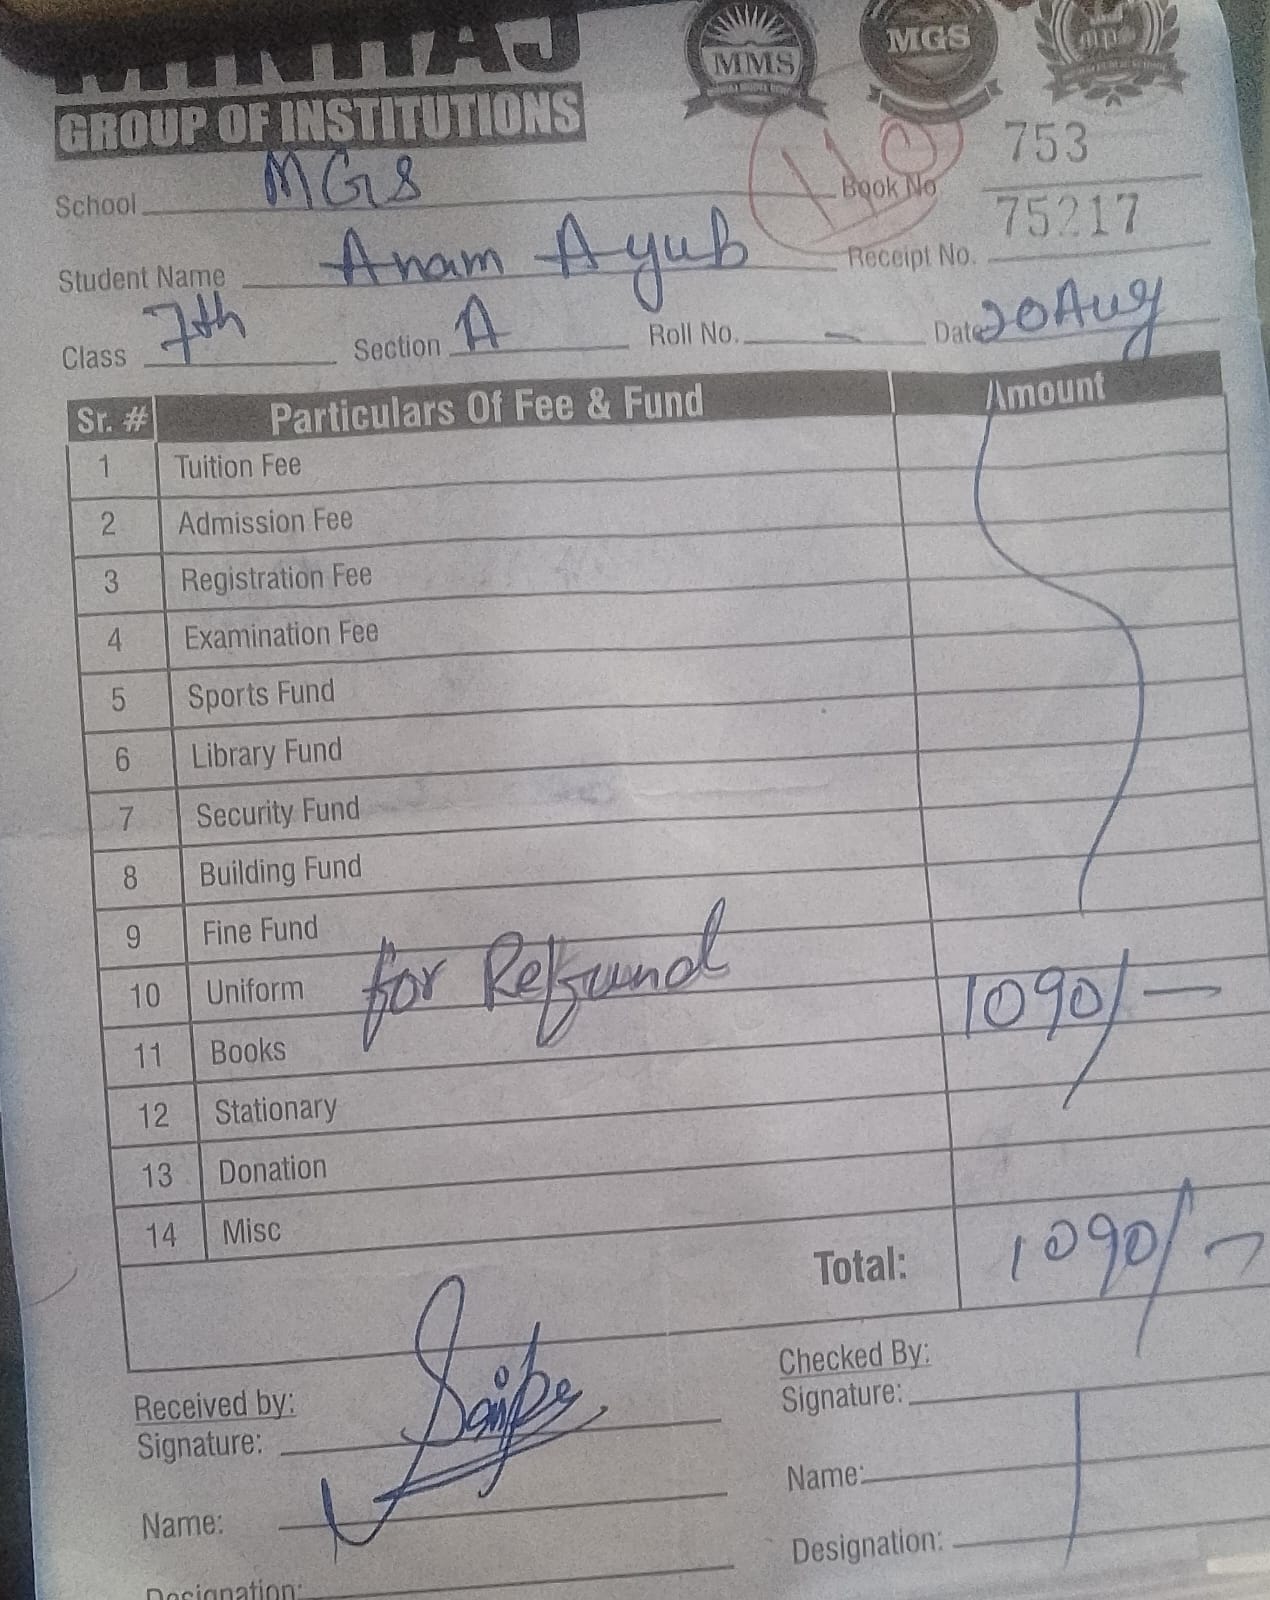 MINHAJ
GROUP OF INSTITUTIONS
MMS
MGS
School MGS
Book No 753
Student Name Anam Ayub
Receipt No. 75217
Class 7th Section A Roll No. - Date 20 Aug
Sr. # Particulars Of Fee & Fund Amount
1 Tuition Fee
2 Admission Fee
3 Registration Fee
4 Examination Fee
5 Sports Fund
6 Library Fund
7 Security Fund
8 Building Fund
9 Fine Fund
10 Uniform for Refund 1090/-
11 Books
12 Stationary
13 Donation
14 Misc
Total: 1090/-
Received by:
Signature:
Name:
Designation:
Checked By:
Signature:
Name:
Designation: